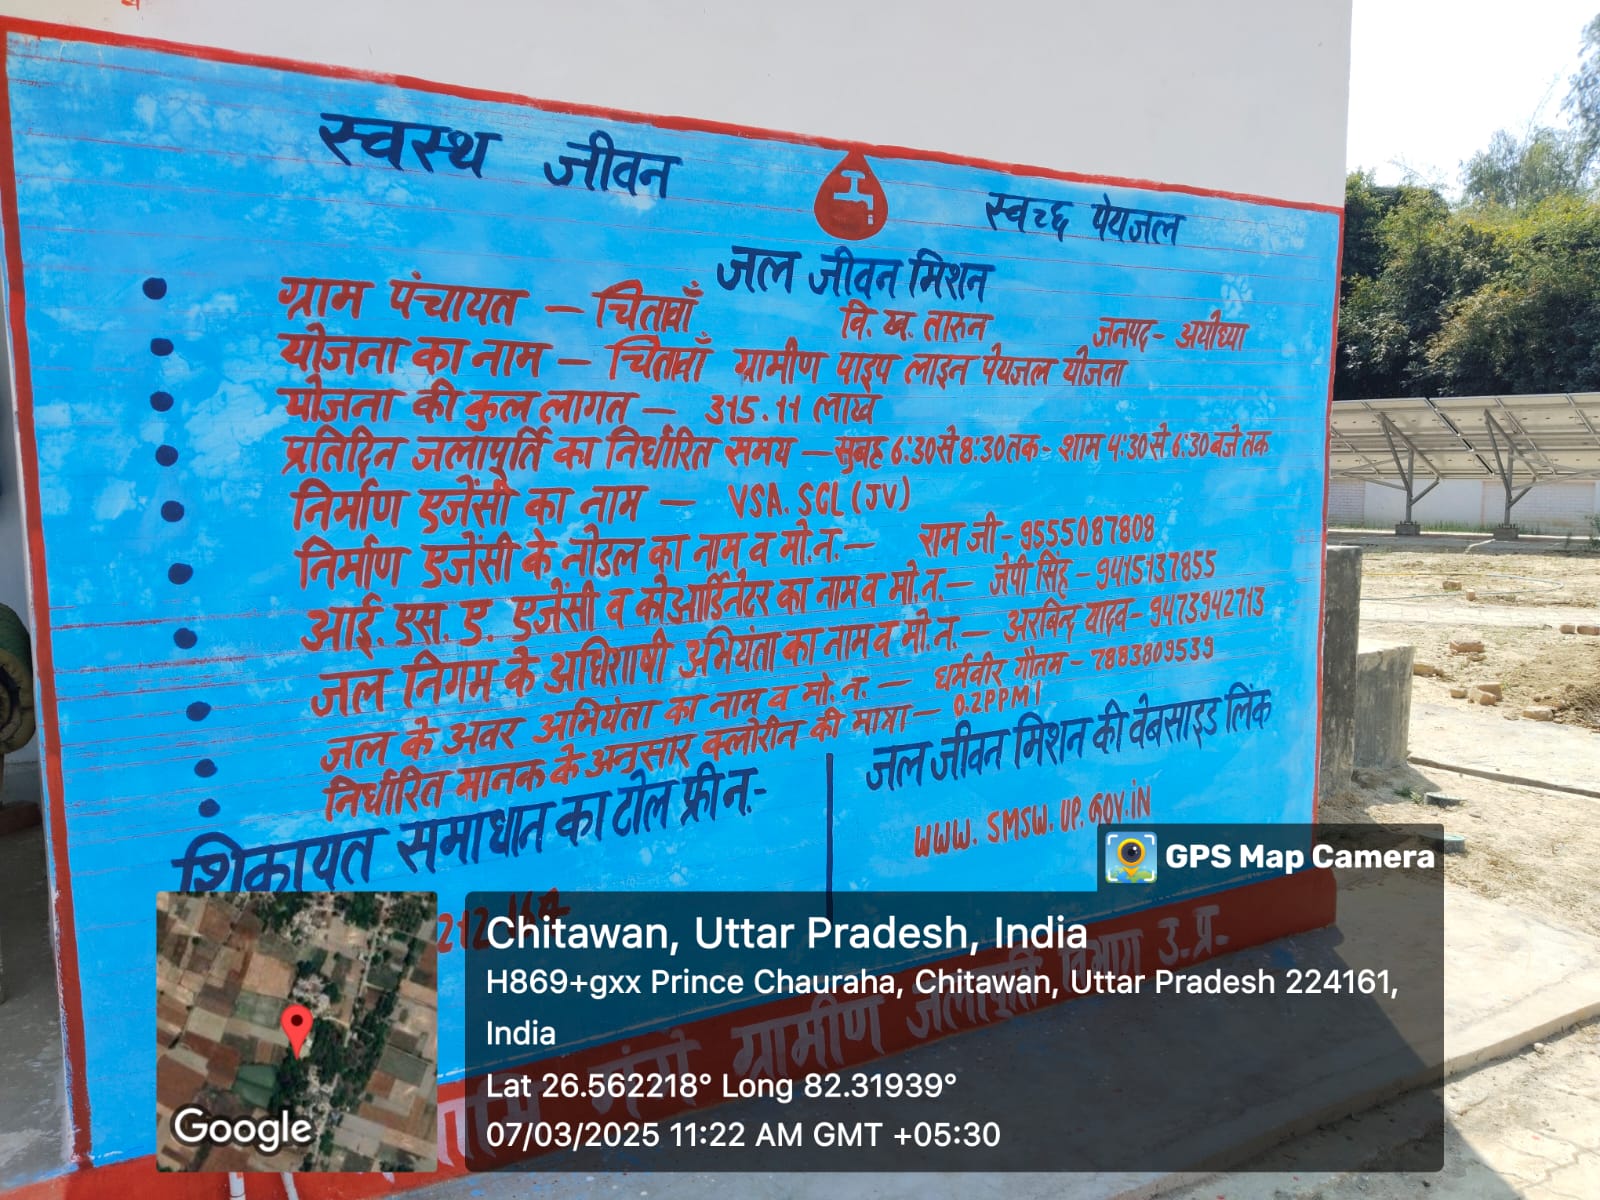 स्वस्थ जीवन
स्वच्छ पेयजल
जल जीवन मिशन
ग्राम पंचायत – चितावाँ वि. ख. तारुन जनपद- अयोध्या
योजना का नाम – चितावाँ ग्रामीण पाइप लाइन पेयजल योजना
योजना की कुल लागत – 315.11 लाख
प्रतिदिन जलापूर्ति का निर्धारित समय – सुबह 6:30 से 8:30 तक - शाम 4:30 से 6:30 बजे तक
निर्माण एजेंसी का नाम – VSA. SGL (JV)
निर्माण एजेंसी के नोडल का नाम व मो.न. – राम जी - 9555087808
आई. एस. ए. एजेंसी व कोआर्डिनेटर का नाम व मो. न. – जेपी सिंह - 9415137855
जल निगम के अधिशाषी अभियंता का नाम व मो. न. – अरबिन्द यादव - 9473942713
जल के अवर अभियंता का नाम व मो. न. – धर्मवीर गौतम - 7883809539
निर्धारित मानक के अनुसार क्लोरीन की मात्रा – 0.2PPM।
शिकायत समाधान का टोल फ्री न.-
जल जीवन मिशन की वेबसाइड लिंक
WWW. SMSW. UP. GOV.iN
ग्रामीण जलापूर्ति विभाग उ. प्र.
GPS Map Camera
Chitawan, Uttar Pradesh, India
H869+gxx Prince Chauraha, Chitawan, Uttar Pradesh 224161,
India
Lat 26.562218° Long 82.31939°
07/03/2025 11:22 AM GMT +05:30
Google